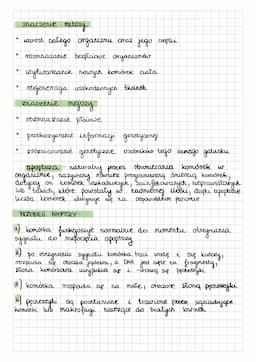 znaczenie mitozy
• wzrost całego organizmu oraz jego części
• rozmnażanie bezpłciowe organizmów
• wytwarzanie nowych komórek ciała
• regeneracja uszkodzonych tkanek
znaczenie mejozy
• rozmnażanie płciowe
• przekazywanie informacji genetycznej
• zróżnicowanie genetyczne osobników tego samego gatunku
apoptoza - naturalny proces obumierania komórek w
organizmie, nazywany również programowaną śmiercią komórek,
dotyczy on komórek uszkodzonych,
lub takich, które powstały w nadmiernej ilości, dzięki apoptozie
liczba komórek utrzymuje się na odpowiednim poziomie
PRZEBIEG APOPTOZY:
1) komórka funkcjonuje normalnie do momentu otrzymania
sygnału do rozpoczęcia apoptozy
2) po otrzymaniu sygnału komórka traci wodę i się kurczy,
rozpada się otoczka jądrowa, a DNA jest cięte na fragmenty,
błona komórkowa uwypukla się i tworzą się pęcherzyki
3) komórka rozpada się na małe, otoczone błoną pęcherzyki
4) pęcherzyki są pochłaniane i trawione przez sąsiadujące
komórki lub makrofagi należące do białych krwinek